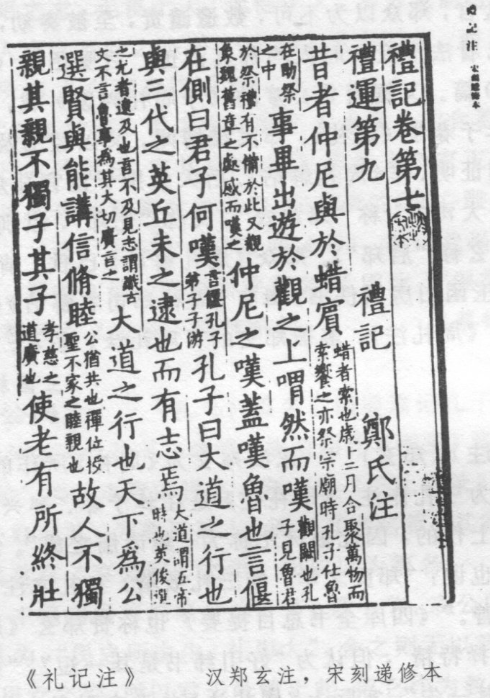 禮記注 宋刻遞修本
禮記卷第七
禮運第九 禮記 鄭氏注
昔者仲尼與於蜡賓 蜡者索也歲十二月合聚萬物而索饗之亦祭宗廟時孔子仕魯
在助祭之中 事畢出遊於觀之上喟然而嘆 觀闕也孔子見魯君
於祭禮有不備於此又觀象魏舊章之處感而嘆之 仲尼之嘆蓋嘆魯也言偃
在側曰君子何嘆 言偃孔子弟子子游 孔子曰大道之行也
與三代之英丘未之逮也而有志焉 大道謂五帝時也英俊選
之尤者逮及也言不及見志謂識古文不言魯事為其大切廣言之 大道之行也天下為公
選賢與能講信脩睦 公猶共也禪位授聖不家之睦親也 故人不獨
親其親不獨子其子 孝慈之道廣也 使老有所終壯
《礼记注》 汉郑玄注，宋刻递修本